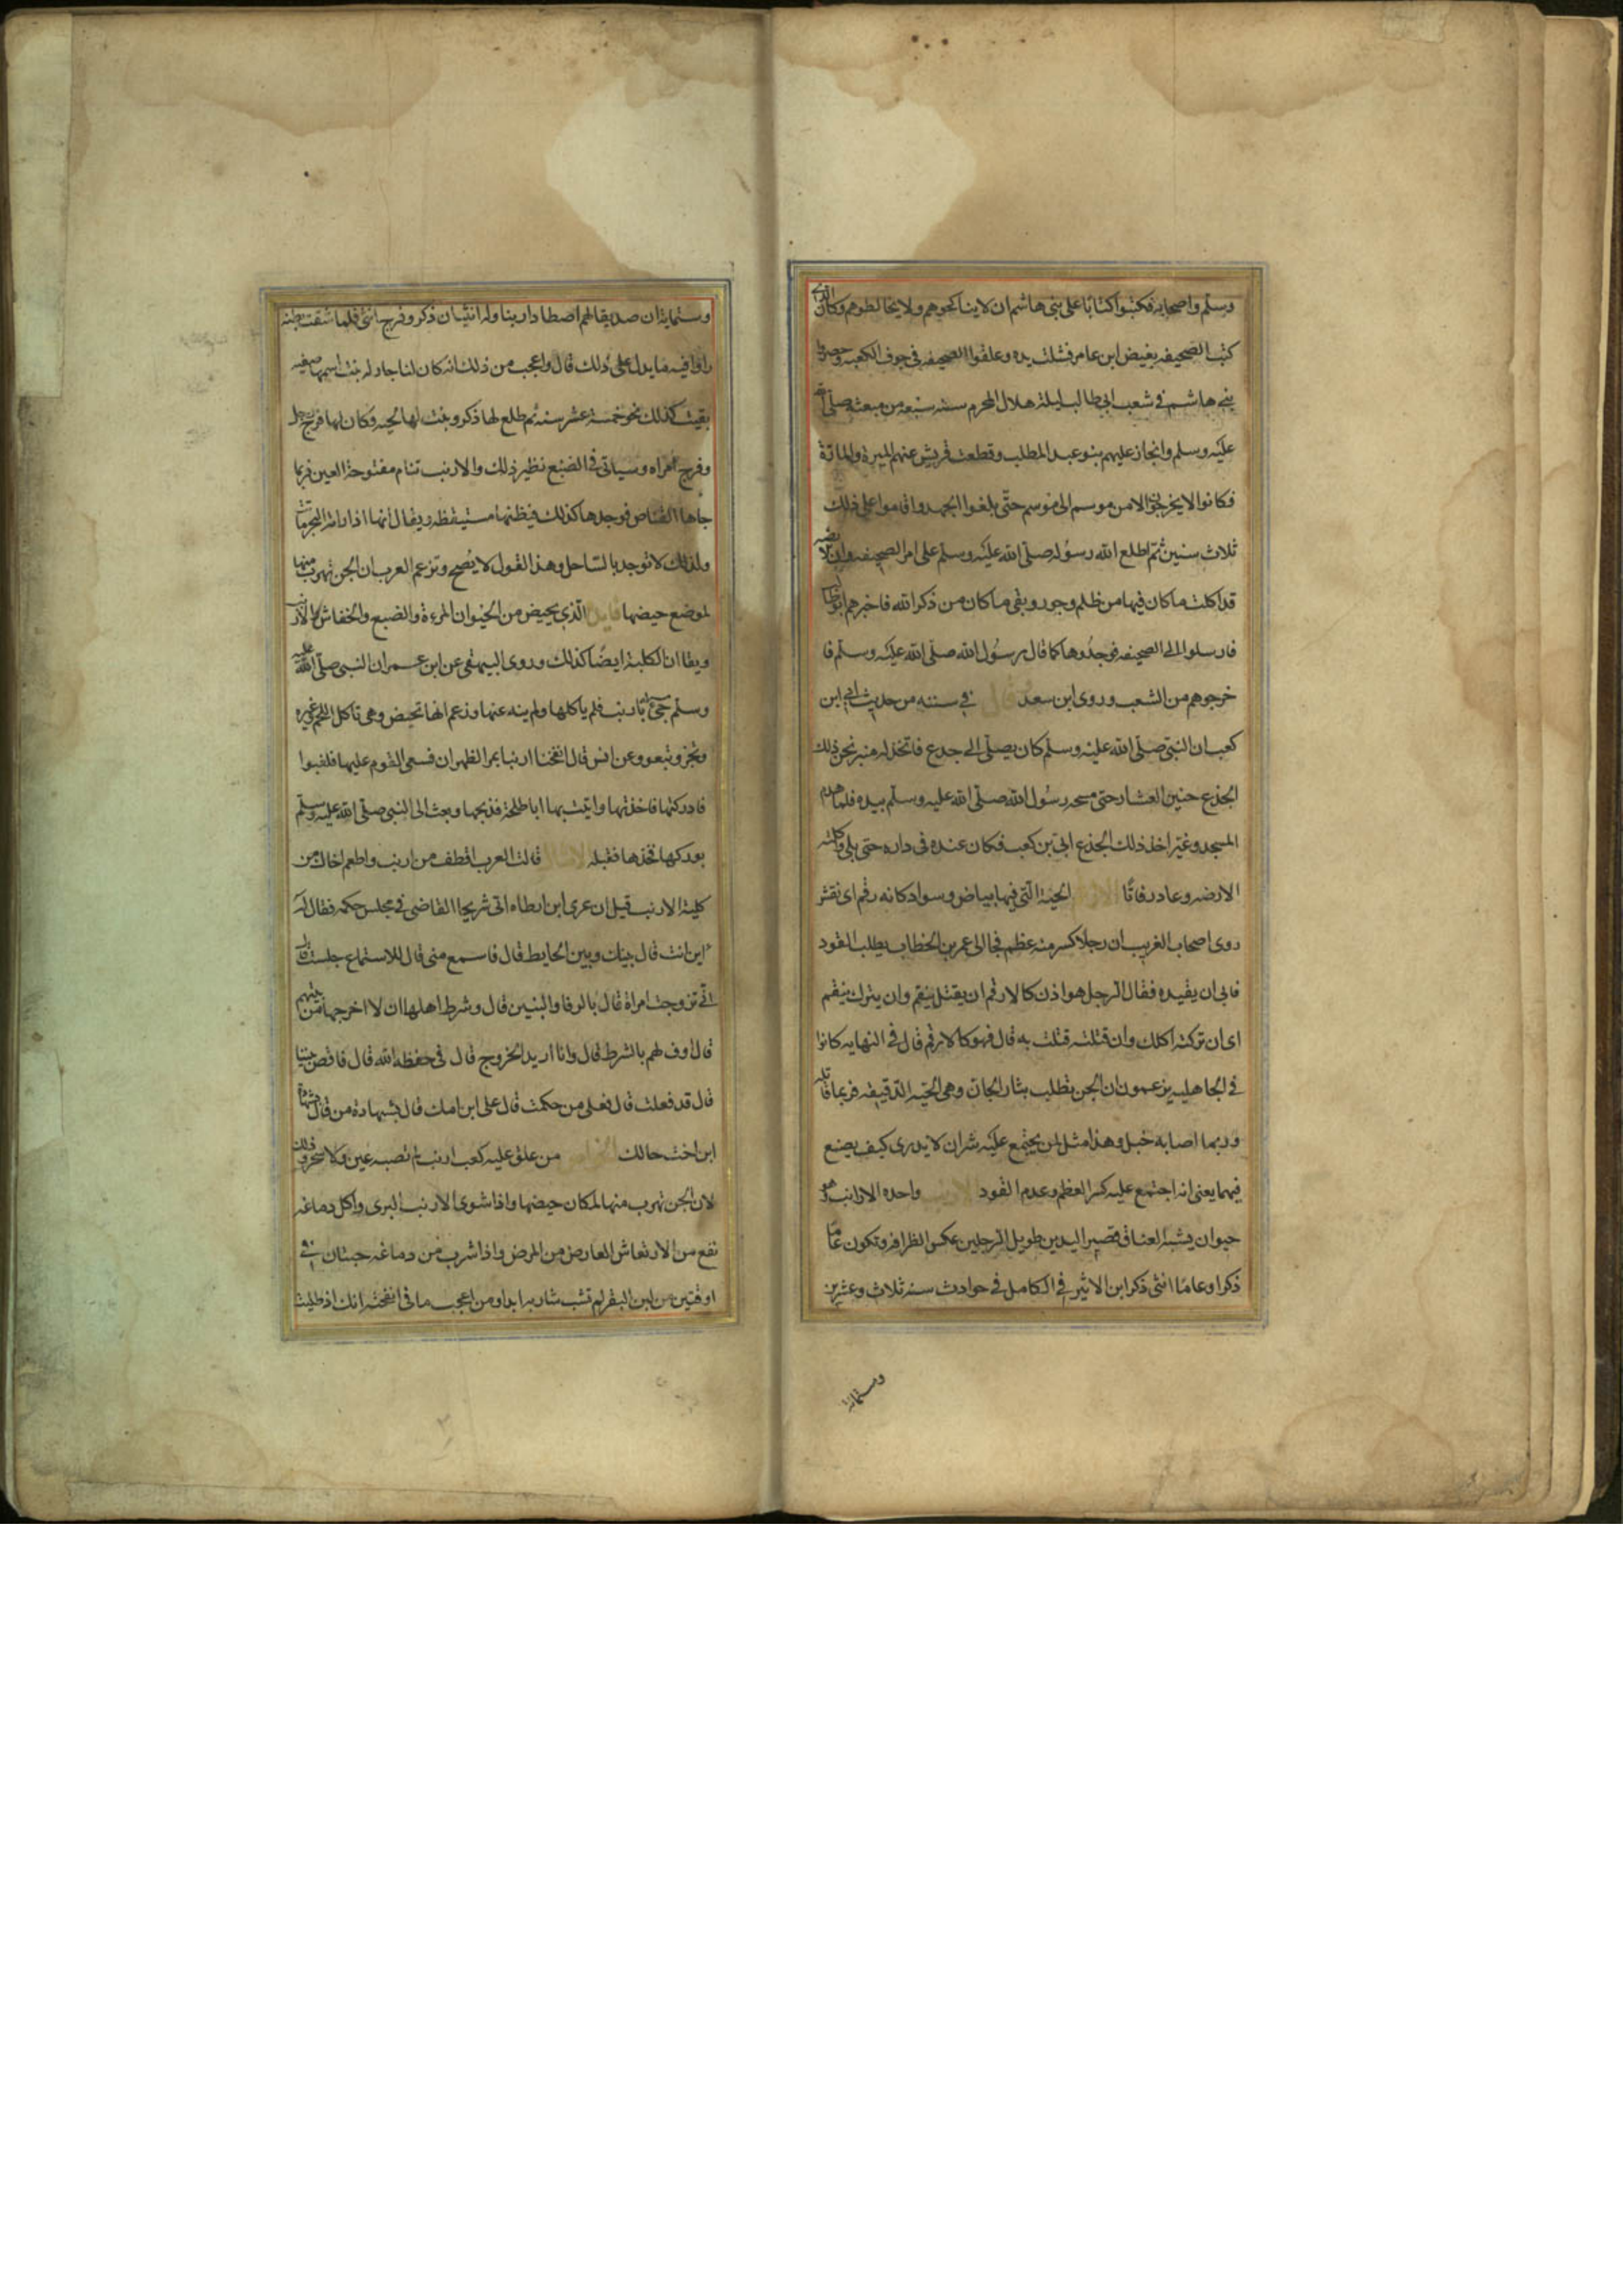 وسلم واصحابه فكتبوا كتابا على بنى هاشم ان لا يناكحوهم ولا يخالطوهم وكان الذى
كتب الصحيفه بغيض ابن عامر فشلت يده وعلقوا الصحيفه فى جوف الكعبه وحصروا
بنى هاشم فى شعب ابى طالب ليلة هلال المحرم سنه سبعه من مبعثه صلى الله
عليه وسلم وانحاز عليهم بنو عبد المطلب وقطعت قريش عنهم الميرة والمادة
فكانوا لا يخرجون الا من موسم الى موسم حتى بلغوا الجهد واقاموا على ذلك
ثلاث سنين ثم اطلع الله رسوله صلى الله عليه وسلم على امر الصحيفه وان الارضه
قد اكلت ما كان فيها من ظلم وجور وبقى ما كان من ذكر الله فاخبرهم ابو طالب
فارسلوا الى الصحيفه فوجدوها كما قال رسول الله صلى الله عليه وسلم فا
خرجوهم من الشعب وروى ابن سعد فى سننه من حديث ابى ابن
كعب ان النبى صلى الله عليه وسلم كان يصلى الى جدع فاتخذ له منبر نحن ذلك
الجذع حنين العشار حتى مسحه رسول الله صلى الله عليه وسلم بيده فلما هدم
المسجد وغير اخذ ذلك الجذع ابى بن كعب فكان عنده فى داره حتى بلى واكلته
الارضه وعاد رفاتا الارقم الحية التى فيها بياض وسواد كانه رقم اى نقش
روى اصحاب الغريب ان رجلا كسر منه عظم فجا الى عمر بن الخطاب يطلب القود
فابى ان يقيده فقال الرجل هو اذن كالارقم ان يقتل ينقم وان يترك ينقم
اى ان تركته اكلك وان قتلته قتلت به قال فهو كالارقم قال فى النهايه كانوا
فى الجاهليه يزعمون ان الجن يطلب بثار الجان وهى الحيه الدقيقه فربما قاتله
وربما اصابه خبل وهذا مثل لمن يجتمع عليه شران لا يدرى كيف يصنع
فيهما يعنى انه اجتمع عليه كسر العظم وعدم القود الارنب واحده الارانب وهو
حيوان يشبه العناق قصير اليدين طويل الرجلين عكس الظرافه وتكون عاما
ذكرا وعاما انثى ذكر ابن الاثير فى الكامل فى حوادث سنه ثلاث وعشرين
وستمائة
وستماية ان صديقا لهم اصطاد ارنبا وله انثيان ذكر وفرج انثى فلما شقت بطنه
راوا فيه ما يدل على ذلك قال واعجب من ذلك انه كان لنا جار له بنت اسمها صفيه
بقيت كذلك نحو خمسة عشر سنه ثم طلع لها ذكر ونبت لها لحيه فكان لها فرج رجل
وفرج امراه وسياتى فى الضبع نظير ذلك والارنب تنام مفتوحة العين فربما
جاها القناص فوجدها كذلك فيظنها مستيقظه ويقال انها اذا رات البحر ماتت
ولذلك لا توجد بالساحل وهذا القول لا يصح وتزعم العرب ان الجن تهرب منها
لموضع حيضها فايدة الذى يحيض من الحيوان المرءة والضبع والخفاش والارنب
ويقا ان الكلبة ايضا كذلك وروى البيهقى عن ابن عمر ان النبى صلى الله عليه
وسلم جىء بارنب فلم ياكلها ولم ينه عنها وزعم انها تحيض وهى تاكل اللحم وغيره
وتجر وتبعر وعن انس قال انفجنا ارنبا بمر الظهران فسعى القوم عليها فلغبوا
فادركتها فاخذتها واتيت بها ابا طلحة فذبحها وبعث الى النبى صلى الله عليه وسلم
بوركها فخذها فقبله الامثال قالت العرب اقطف من ارنب واطعم اخاك من
كلية الارنب قيل ان عدى ابن ارطاه اتى شريحا القاضى فى مجلس حكمه فقال له
اين انت قال بينك وبين الحايط قال فاسمع منى قال للاستماع جلست قال
انى تزوجت امراة قال بالرفا والبنين قال وشرط اهلها ان لا اخرجها من بيتهم
قال اوف لهم بالشرط قال وانا اريد الخروج قال فى حفظ الله قال فاقض بيننا
قال قد فعلت قال فعلى من حكمت قال على ابن امك قال بشهادة من قال بشهادة
ابن اخت خالك الخواص من علق عليه كعب ارنب لم تصبه عين ولا سحر وذلك
لان الجن تهرب منها لمكان حيضها واذا شوى الارنب البرى واكل دماغه
نفع من الارتعاش العارض من المرض واذا شرب من دماغه حبتان فى
اوقتين من لبن البقر لم تشب شاربه ابدا ومن اعجب ما فى انفحته انك اذ طليت